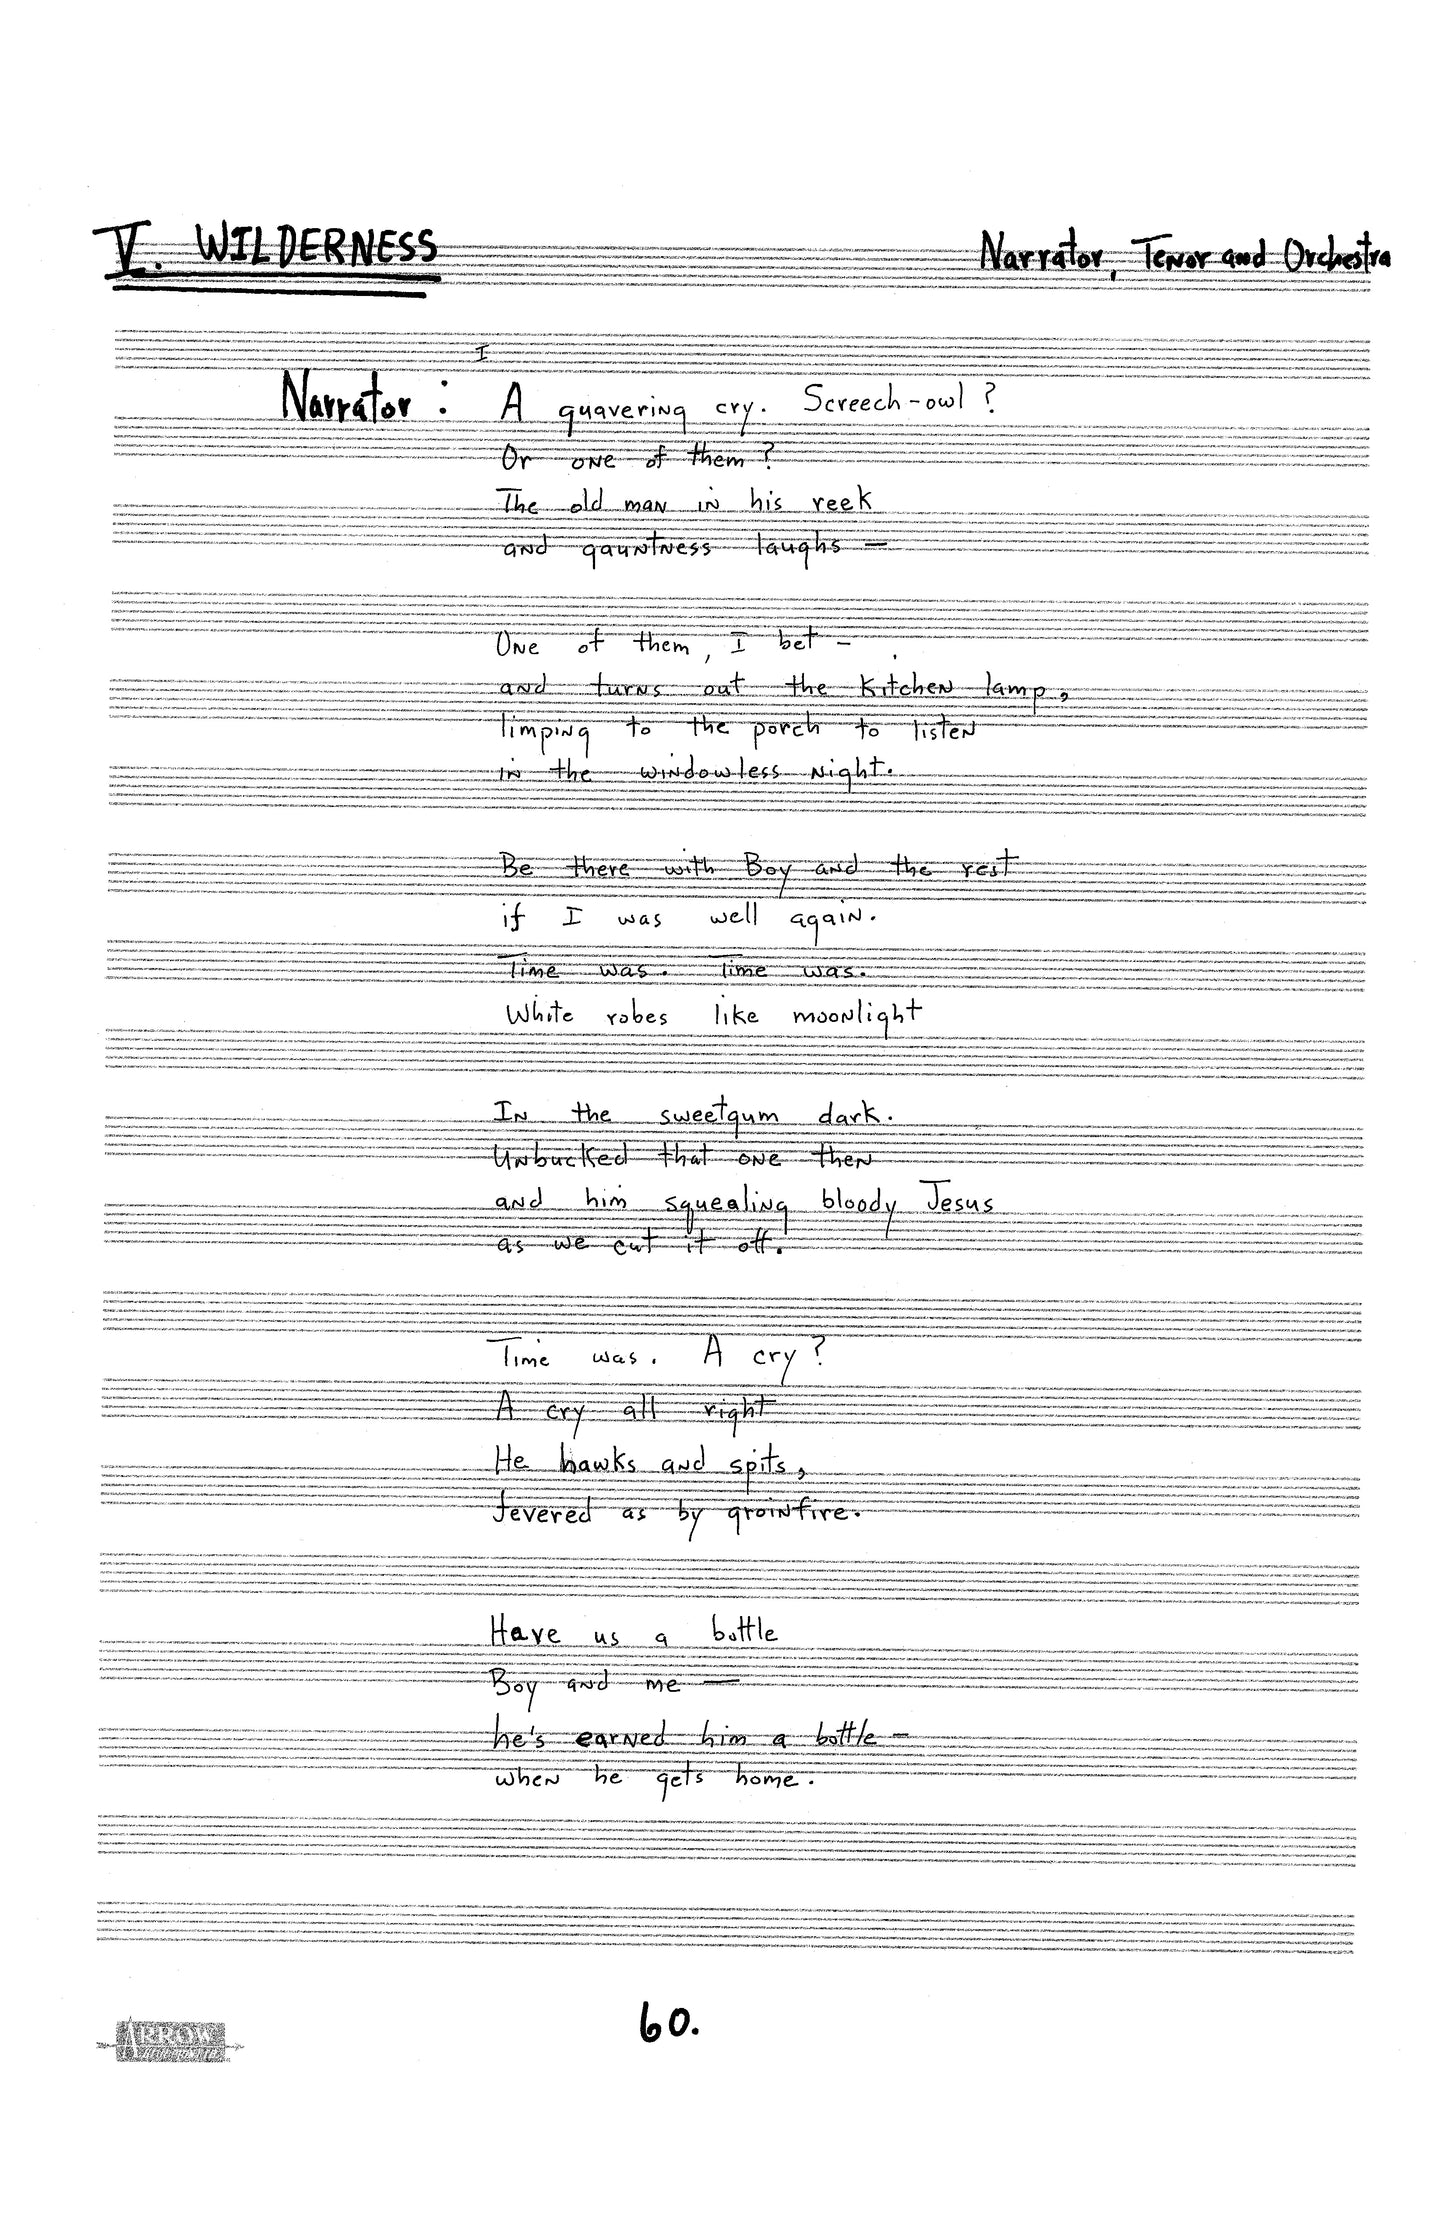 V. WILDERNESS
Narrator, Tenor and Orchestra
I
Narrator: A quavering cry. Screech-owl?
Or one of them?
The old man in his reek
and gauntness laughs —
One of them, I bet —
and turns out the kitchen lamp,
limping to the porch to listen
in the windowless night.
Be there with Boy and the rest
if I was well again.
Time was. Time was.
White robes like moonlight
In the sweetgum dark.
Unbucked that one then
and him squealing bloody Jesus
as we cut it off.
Time was. A cry?
A cry all right
He hawks and spits,
fevered as by groinfire.
Have us a bottle
Boy and me —
he's earned him a bottle —
when he gets home.
60.
ARROW